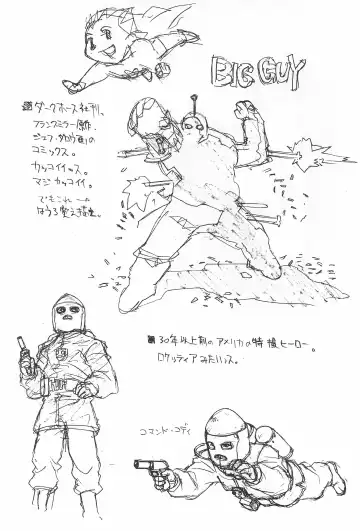 BIG GUY
ダークホース社刊。
フランクミラー原作、
ジェフ・ダロウ画の
コミックス。
カッコイイっス。
マジカッコイイ。
でもこれ→
はうろ覚え
30年以上前のアメリカの特撮ヒーロー。
ロケッティアみたいっス。
コマンド・コディ